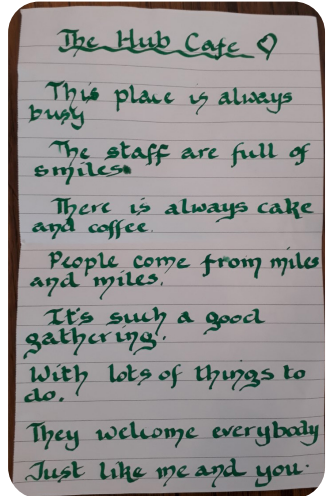 The Hub Cafe ♡
This place is always
busy
The staff are full of
smiles.
There is always cake
and coffee.
People come from miles
and miles.
It's such a good
gathering.
With lots of things to
do.
They welcome everybody
Just like me and you.